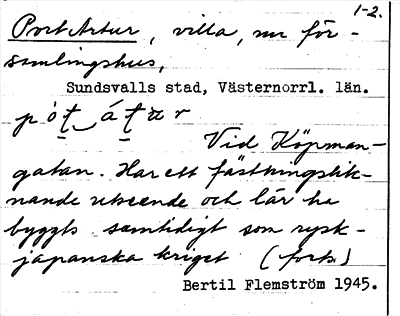 1-2.
Port Artur, villa, nu för-
samlingshus,
Sundsvalls stad, Västernorrl. län.
Vid Köpman-
gatan. Har ett fästningslik-
nande utseende och lär ha
byggts samtidigt som rysk-
japanska kriget (forts)
Bertil Flemström 1945.